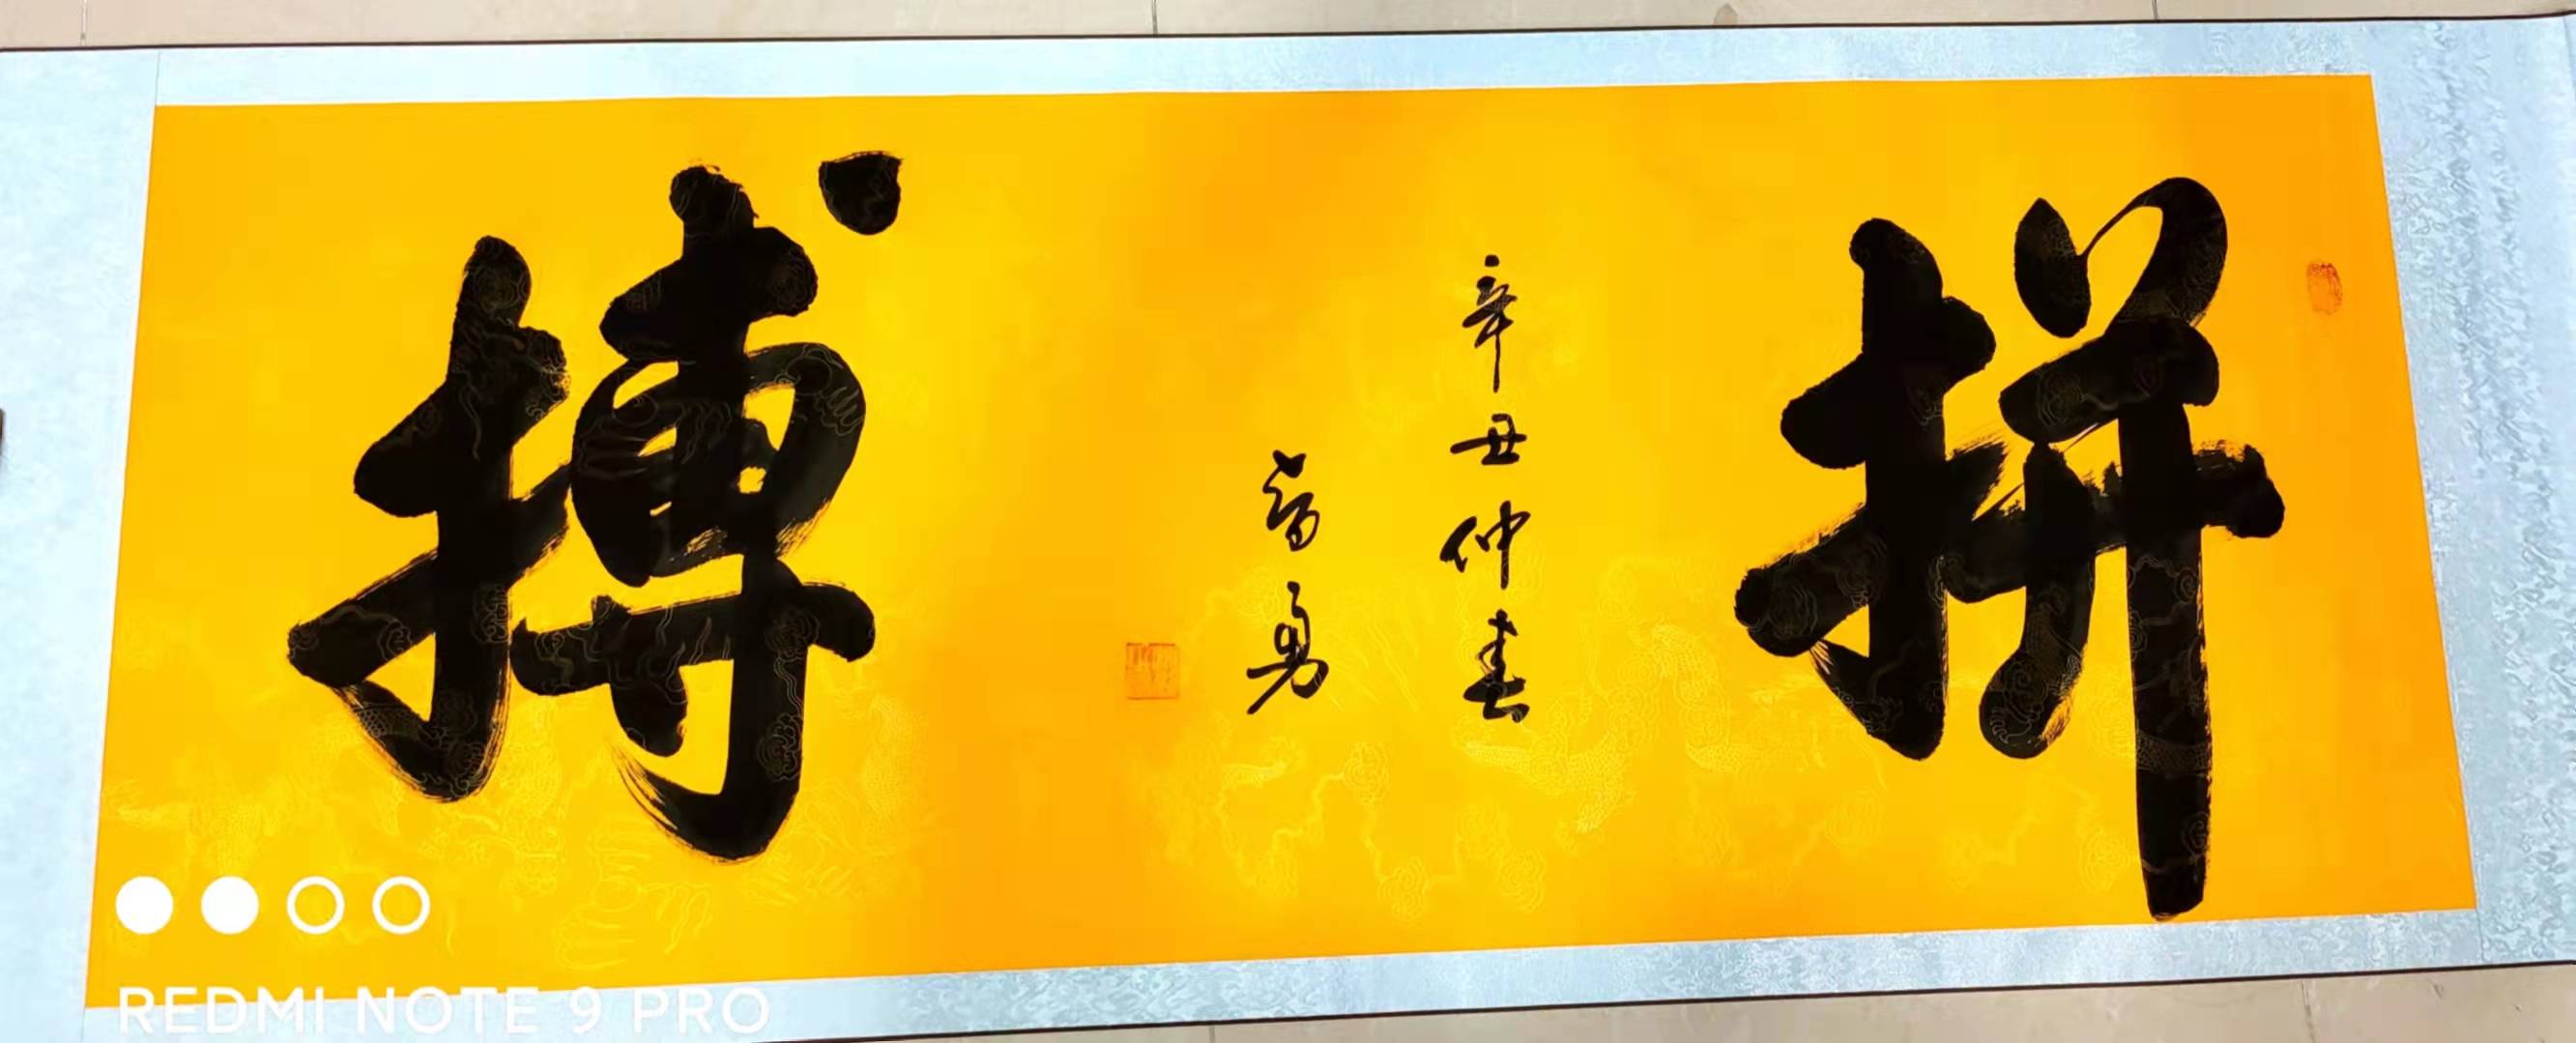 拼
搏
辛丑仲春
勇
REDMI NOTE 9 PRO